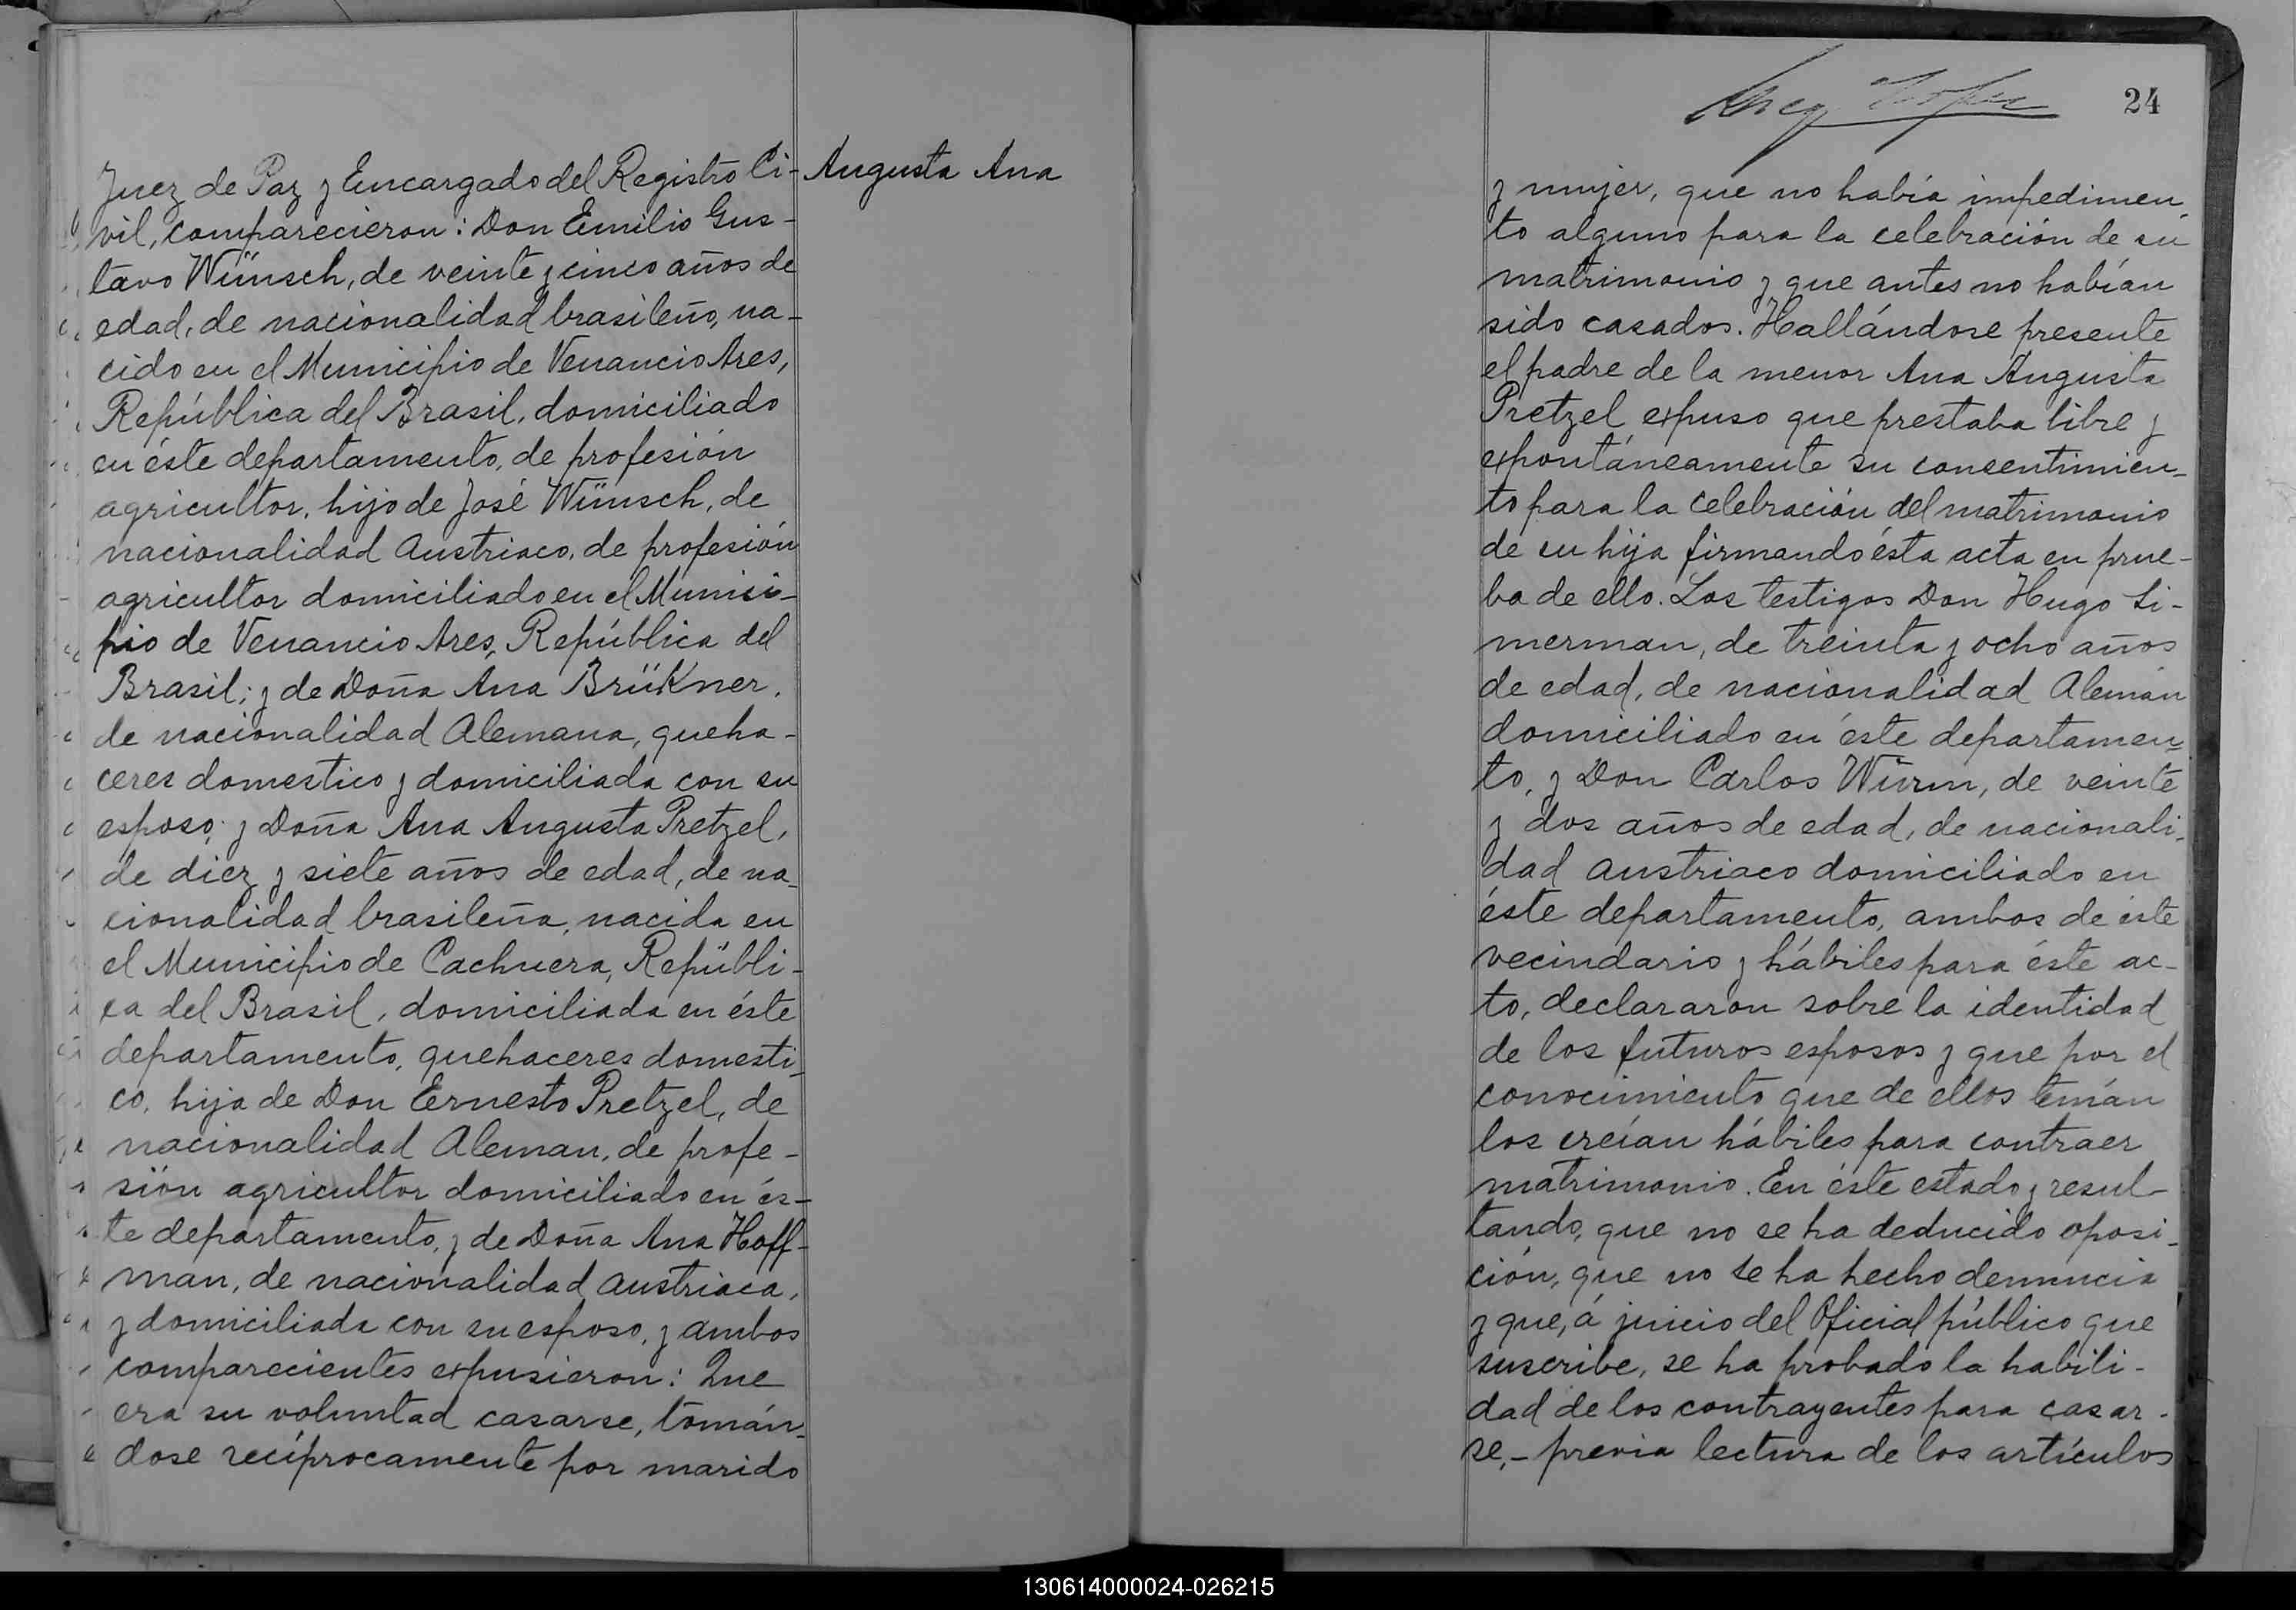 Juez de Paz y Encargado del Registro Ci-
vil, comparecieron: Don Emilio Gus-
tavo Wünsch, de veinte y cinco años de
edad, de nacionalidad brasileño, na-
cido en el Municipio de Venancio Ares,
República del Brasil, domiciliado
en éste departamento, de profesión
agricultor, hijo de José Wünsch, de
nacionalidad Austriaco, de profesión
agricultor domiciliado en el Munici-
pio de Venancio Ares, República del
Brasil; y de Doña Ana BrüKner,
de nacionalidad Alemana, queha-
ceres domestico y domiciliada con su
esposo; y Doña Ana Augusta Pretzel,
de diez y siete años de edad, de na-
cionalidad brasileña, nacida en
el Municipio de Cachuera, Repúbli-
ca del Brasil, domiciliada en éste
departamento, quehaceres domesti-
co, hija de Don Ernesto Pretzel, de
nacionalidad Aleman, de profe-
sión agricultor domiciliado en és-
te departamento, y de Doña Ana Hoff-
man, de nacionalidad austriaca,
y domiciliada con su esposo, y ambos
comparecientes expusieron: Que
era su voluntad casarse, tomán-
dose recíprocamente por marido
Augusta Ana
24
y mujer, que no había impedimen-
to alguno para la celebración de su
matrimonio y que antes no habían
sido casados. Hallándose presente
el padre de la menor Ana Augusta
Pretzel expuso que prestaba libre y
expontáneamente su consentimien-
to para la celebración del matrimonio
de su hija firmando ésta acta en prue-
ba de ello. Los testigos Don Hugo Si-
merman, de treinta y ocho años
de edad, de nacionalidad Alemán
domiciliado en éste departamen-
to, y Don Carlos Würm, de veinte
y dos años de edad, de nacionali-
dad austriaco domiciliado en
éste departamento, ambos de éste
vecindario y hábiles para éste ac-
to, declararon sobre la identidad
de los futuros esposos y que por el
conocimiento que de ellos tenían
los creían hábiles para contraer
matrimonio. En éste estado y resul-
tando, que no se ha deducido oposi-
ción, que no se ha hecho denuncia
y que, á juicio del Oficial público que
suscribe, se ha probado la habili-
dad de los contrayentes para casar-
se,- previa lectura de los artículos
130614000024-026215